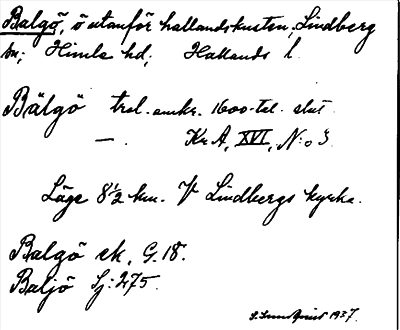 Balgö, ö utanför hallandskusten, Lindberg
sn; Himle hd; Hallands l.
Bälgö trol. omkr. 1600-tal. slut
— . Kr. A, XVI, N:o 3.
Läge 8 1/2 km. V Lindbergs kyrka.
Balgö ek, G. 18.
Baljö Sj: 275.
S. Sundqvist 1937.